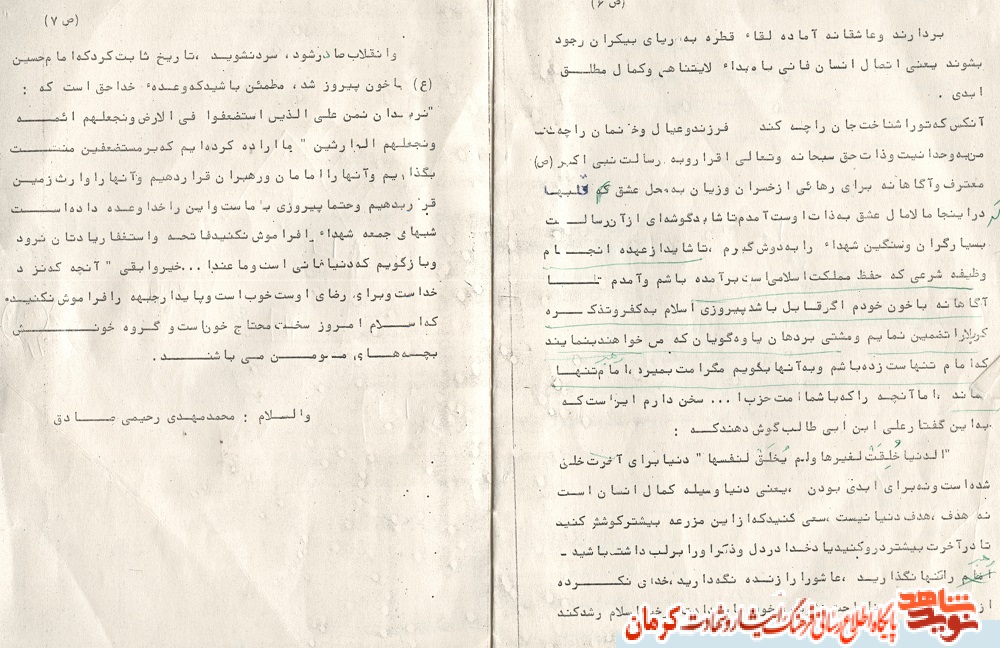 (ص ۶)
بردارند وعاشقانه آماده لقاء قطره به دریای بیکران رجود
بشوند یعنی اتصال انسان فانی با مبداء لایتناهی وکمال مطلق
ابدی .
آنکس که تورا شناخت جان را چه کند فرزند وعیال وخانمان را چه کند
من به وحدانیت وذات حق سبحانه وتعالی اقرار وبه رسالت نبی اکبر (ص)
معترف وآگاهانه برای رهائی از خسران وزیان به محل عشق که قلبها
دراینجا مالامال عشق به ذات اوست آمدم تا شاید گوشه‌ای از آن رسالت
بسیار گران وسنگین شهداء را به دوش گیرم ، تا شاید از عهده انجام
وظیفه شرعی که حفظ مملکت اسلامی است برآمده باشم وآمدم تا
آگاهانه با خون خودم اگر قابل باشد پیروزی اسلام به کفر وتذکره
کربلا را تضمین نمایم ومشتی بر دهان یاوه گویان که می خواهند بنمایند
رهبر
که امام تنهاست زده باشم وبه آنها بگویم مگر امت بمیرد ، امام تنها
بماند ، اما آنچه را که با شما امت حزب ا... سخن دارم این است که
به این گفتار علی ابن ابی طالب گوش دهند که :
"الدنیا خُلِقَتْ لغیرها ولم یُخلَقْ لنفسها " دنیا برای آخرت خلق
شده است ونه برای ابدی بودن ، یعنی دنیا وسیله کمال انسان است
نه هدف ، هدف دنیا نیست ، سعی کنید که از این مزرعه بیشتر کوشش کنید
تا در آخرت بیشتر درو کنید یاد خدا در دل وذکر او را بر لب داشته باشید -
رهبر
امام را تنها نگذارید ، عاشورا را زنده نگه دارید ، خدای نکرده
اسلام رشد کند
(ص ۷)
وانقلاب صادر شود ، سرد نشوید ، تاریخ ثابت کرد که امام حسین
(ع) با خون پیروز شد ، مطمئن باشید که وعده خدا حق است که :
"نرید ان نمن علی الذین استضعفوا فی الارض ونجعلهم ائمه
ونجعلهم الوارثین " ما اراده کرده‌ایم که بر مستضعفین منت
بگذاریم وآنها را امامان ورهبران قرار دهیم وآنها را وارث زمین
قرار بدهیم وحتما پیروزی با ماست واین را خدا وعده داده است
شبهای جمعه شهداء را فراموش نکنید فاتحه واستغفار یادتان نرود
وباز گویم که دنیا فانی است وما عندا ... خیر وابقی " آنچه که نزد
خداست وبرای رضای اوست خوب است وپایدار جبهه را فراموش نکنید
که اسلام امروز سخت محتاج خون است وگروه خونش
بچه‌های مومن می باشند .
والسلام : محمدمهدی رحیمی صادق
نوید شاهد
پایگاه اطلاع رسانی فرهنگ ایثار و شهادت کرمان